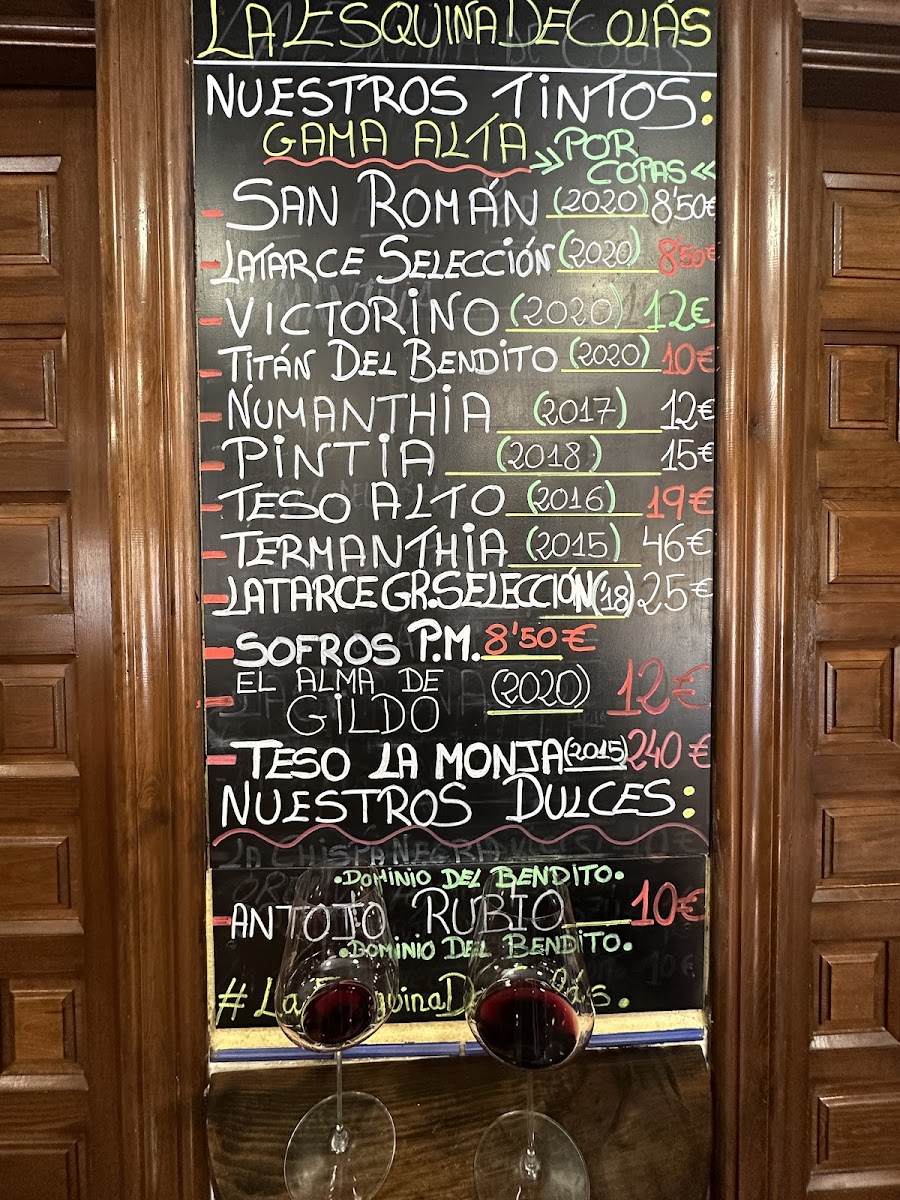 LA ESQUINA DE COLÁS
NUESTROS TINTOS:
GAMA ALTA
»POR COPAS«
- SAN ROMÁN (2020) 8'50€
- LATARCE SELECCIÓN (2020) 8'50€
- VICTORINO (2020) 12€
- TITÁN DEL BENDITO (2020) 10€
- NUMANTHIA (2017) 12€
- PINTIA (2018) 15€
- TESO ALTO (2016) 19€
- TERMANTHIA (2015) 46€
- LATARCE GR.SELECCIÓN ('18) 25€
- SOFROS P.M. 8'50€
- EL ALMA DE GILDO (2020) 12€
- TESO LA MONJA (2015) 240€
NUESTROS DULCES:
LA CHISPA NEGRA
•DOMINIO DEL BENDITO•
- ANTOJO RUBIO 10€
•DOMINIO DEL BENDITO•
#LaEsquinaDeColás.